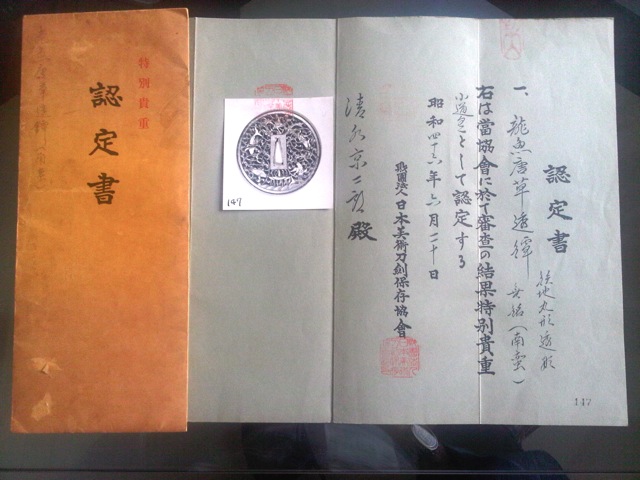 特別貴重
認定書
147
認定書
鉄地丸形透彫
一、龍魚唐草透鐔 無銘(南蛮)
右は當協會に於て審査の結果特別貴重
小道具として認定する
昭和四十六年六月二十日
財團法人日本美術刀剣保存協會
殿
147